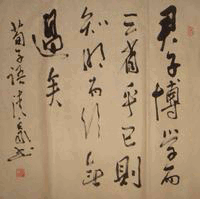 君子博学而
三省乎己则
知明而行无
过矣
荀子语